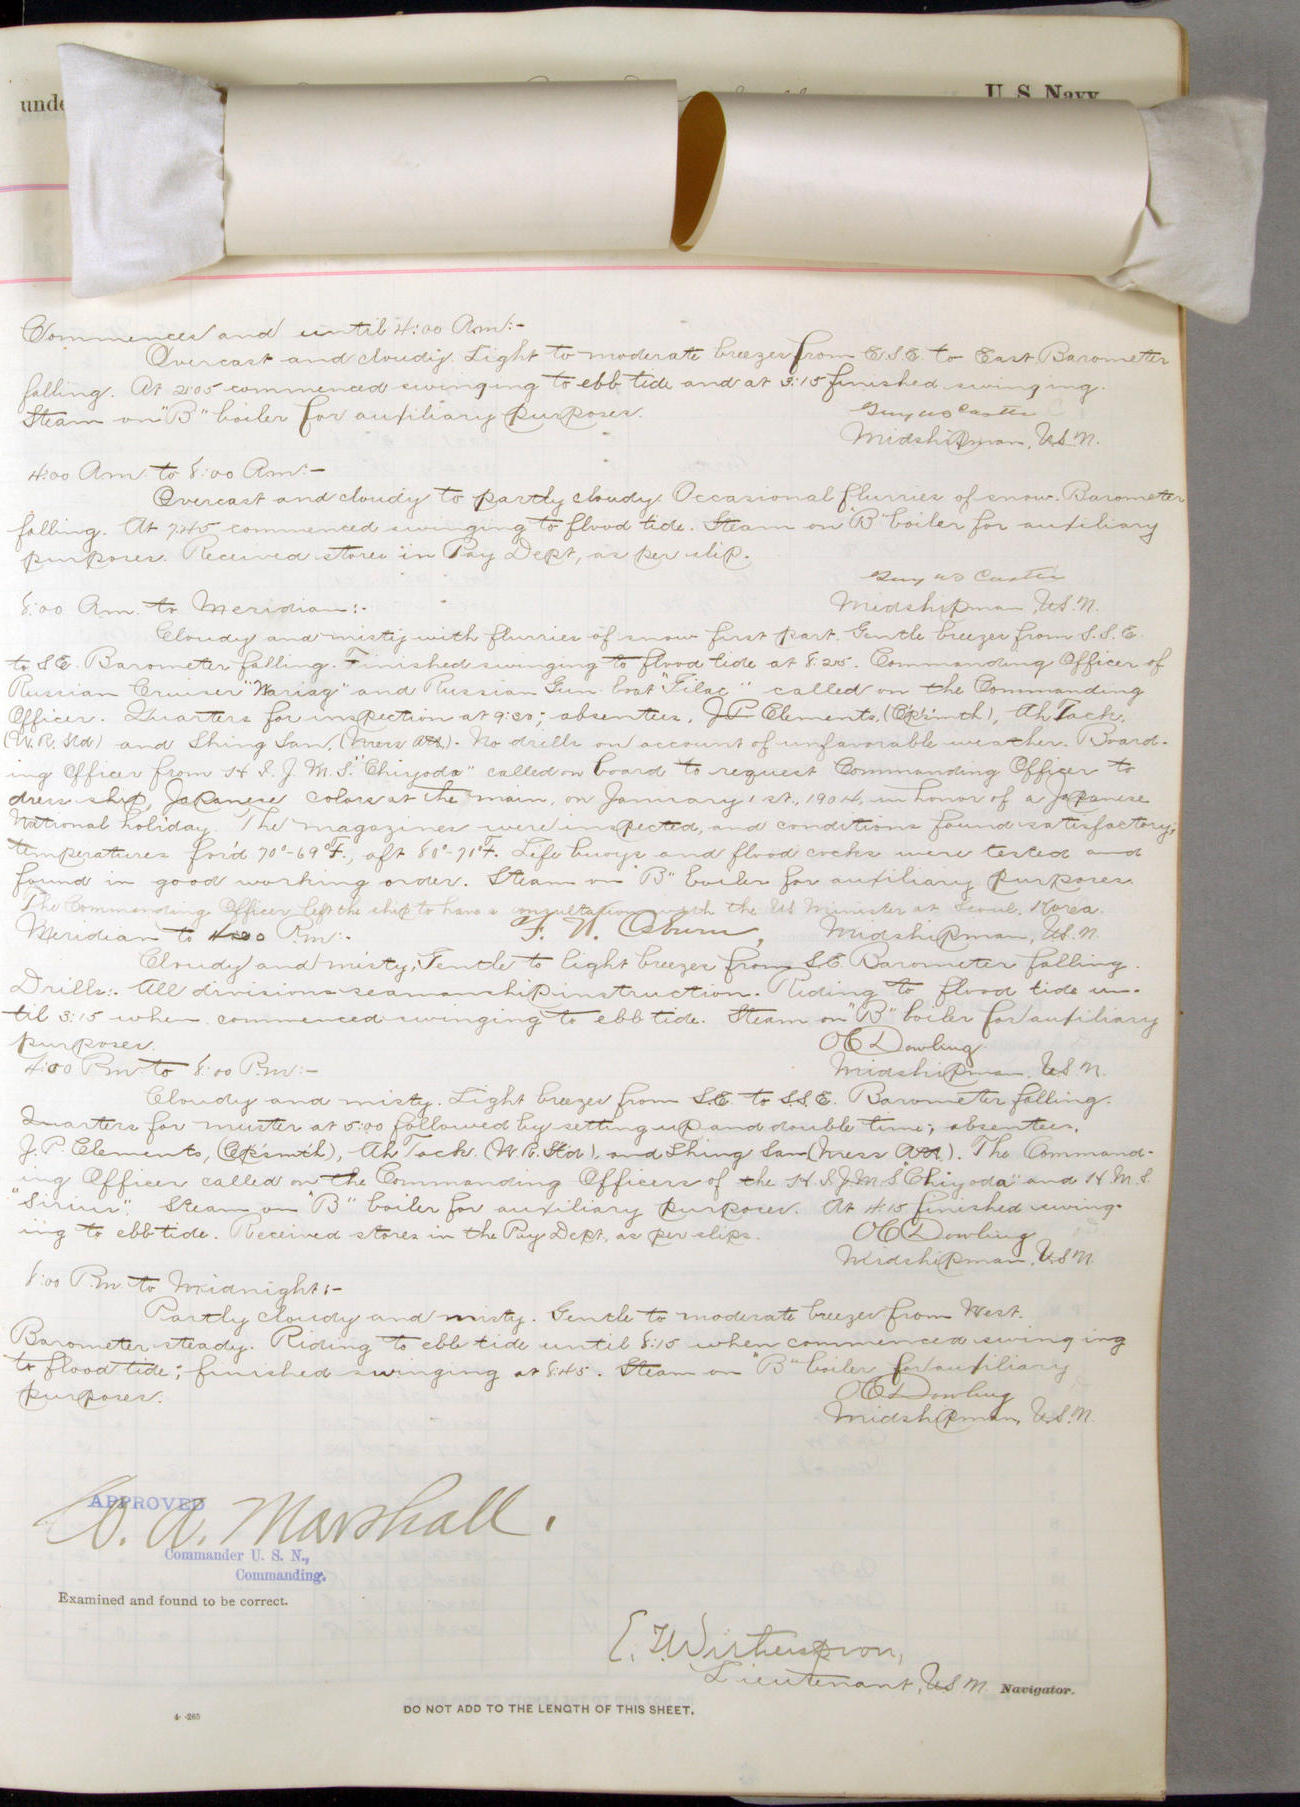 U. S. Navy
Commences and until 4:00 Am:-
Overcast and cloudy. Light to moderate breezes from E.S.E. to East. Barometer
falling. At 2:05 commenced swinging to ebb tide and at 3:15 finished swinging.
Steam on "B" boiler for auxiliary purposes.
Guy W S Castle
Midshipman, U.S.N.
4:00 Am. to 8:00 Am:-
Overcast and cloudy to partly cloudy. Occasional flurries of snow. Barometer
falling. At 7:45 commenced swinging to flood tide. Steam on "B" boiler for auxiliary
purposes. Received stores in Pay Dept, as per slip.
Guy W S Castle
Midshipman, U.S.N.
8:00 Am. to Meridian:-
Cloudy and misty with flurries of snow first part. Gentle breezes from S.S.E.
to S.E. Barometer falling. Finished swinging to flood tide at 8:25. Commanding Officer of
Russian Cruiser "Wariag" and Russian Gun-boat "Filac" called on the Commanding
Officer. Quarters for inspection at 9:30; absentees, J.P. Clements, (Cp'smth), Ah Tack,
(W.R. Std) and Shing San, (Mess Att). No drills on account of unfavorable weather. Board-
ing Officer from H.I.J.M.S. "Chiyoda" called on board to request Commanding Officer to
dress ship, Japanese colors at the main, on January 1st., 1904, in honor of a Japanese
National holiday. The magazines were inspected, and conditions found satisfactory;
temperatures for'd 70°-69°F., aft 80°-71°F. Life buoys and flood cocks were tested and
found in good working order. Steam on "B" boiler for auxiliary purposes.
The Commanding Officer left the ship to have a consultation with the US Minister at Seoul, Korea.
F. N. Osburn, Midshipman, U.S.N.
Meridian to 4:00 P.m:-
Cloudy and misty; Gentle to light breezes from S.E. Barometer falling.
Drills:- All divisions seamanship instruction. Riding to flood tide un-
til 3:15 when commenced swinging to ebb tide. Steam on "B" boiler for auxiliary
purposes.
O C Dowling
Midshipman, U.S.N.
4:00 P.m to 8:00 P.m:-
Cloudy and misty. Light breezes from S.E. to S.S.E. Barometer falling.
Quarters for muster at 5:00 followed by setting up and double time; absentees,
J. P. Clements, (Cp'smth), Ah Tack, (W.R. Std), and Shing San (Mess Att). The Command-
ing Officer called on the Commanding Officers of the H.I.J.M.S. "Chiyoda" and H.M.S.
"Sirius". Steam on "B" boiler for auxiliary purposes. At 4:15 finished swing-
ing to ebb tide. Received stores in the Pay Dept, as per slips.
O C Dowling
Midshipman, U.S.N.
8:00 P.m. to Midnight:-
Partly cloudy and misty. Gentle to moderate breezes from West.
Barometer steady. Riding to ebb tide until 8:15 when commenced swinging
to flood tide; finished swinging at 8:45. Steam on "B" boiler for auxiliary
purposes.
O C Dowling
Midshipman, U.S.N.
APPROVED
W. A. Marshall.
Commander U. S. N.,
Commanding.
Examined and found to be correct.
E. T. Witherspoon,
Lieutenant, U.S.N. Navigator.
DO NOT ADD TO THE LENGTH OF THIS SHEET.
4-265